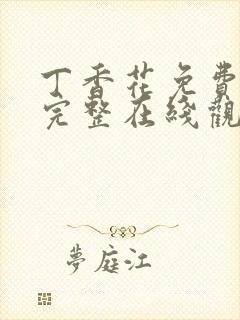 丁香花免費
完整在綫觀
夢庭江